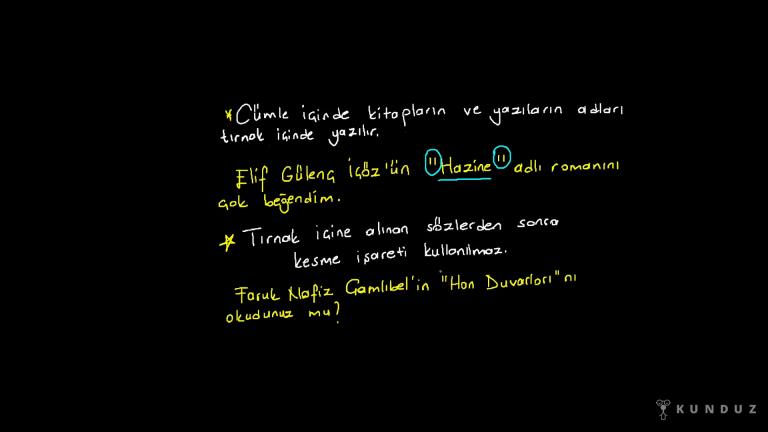 * Cümle içinde kitapların ve yazıların adları
tırnak içinde yazılır.
Elif Güleng İçöz'ün "Hazine" adlı romanını
çok beğendim.
* Tırnak içine alınan sözlerden sonra
kesme işareti kullanılmaz.
Faruk Nafiz Çamlıbel'in "Han Duvarları"nı
okudunuz mu?
KUNDUZ